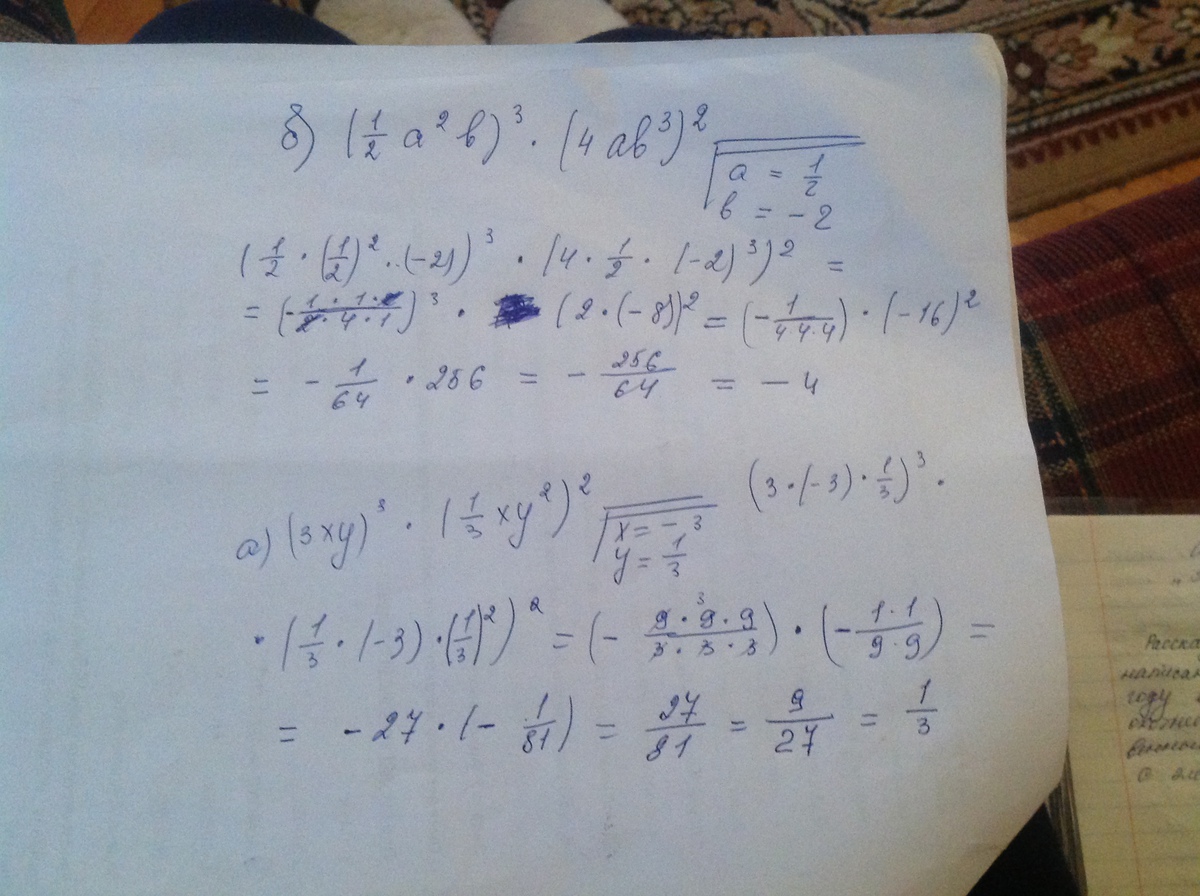 б) (1/2 a² b)³ · (4 ab³)²
a = 1/2
b = -2
(1/2 · (1/2)² · (-2))³ · (4 · 1/2 · (-2)³)² =
= (- 1·1·2/2·4·1)³ · (2·(-8))² = (- 1/4·4·4) · (-16)²
= - 1/64 · 256 = - 256/64 = - 4
а) (3xy)³ · (1/3 xy²)²
x = - 3
y = 1/3
(3·(-3)·1/3)³ ·
· (1/3 · (-3) · (1/3)²)² = (- 9·9·9/3·3·3) · (- 1·1/9·9) =
= - 27 · (- 1/81) = 27/81 = 9/27 = 1/3
Расска
написан
году